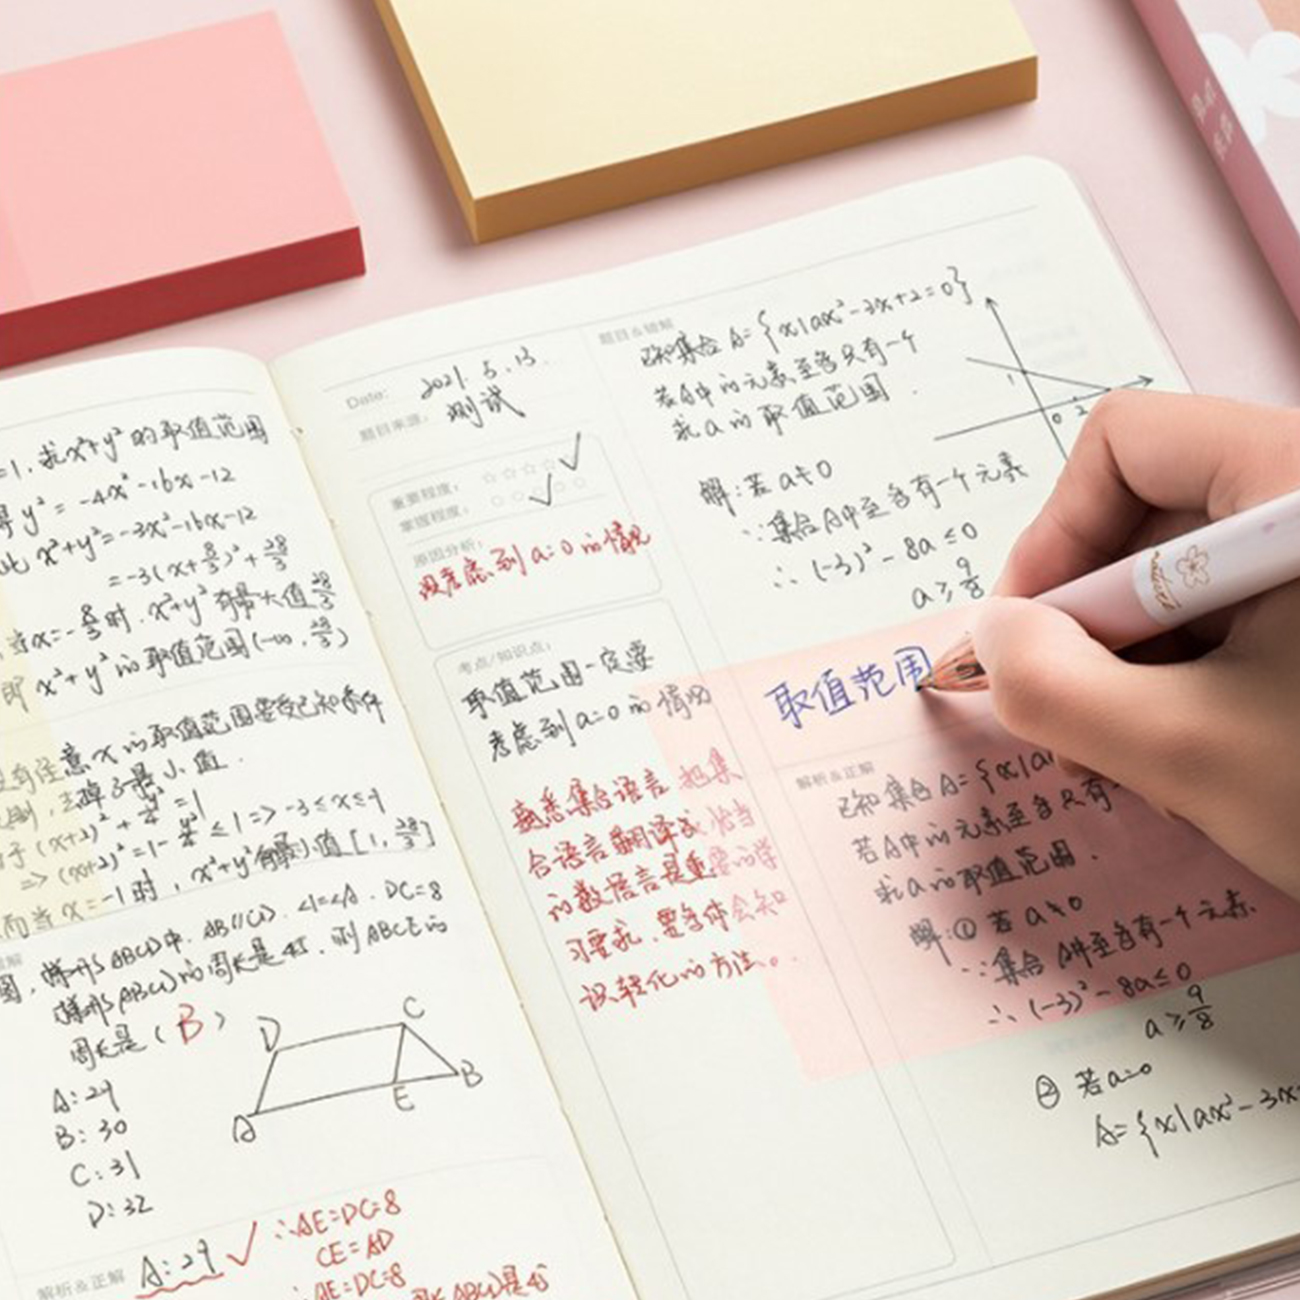 =1，求x²+y²的取值范围
得y²=-4x²-16x-12
此 x²+y²=-3x²-16x-12
=-3(x+8/3)²+28/3
当x=-8/3时，x²+y²有最大值28/3
即 x²+y²的取值范围(-∞，28/3)
意x的取值范围要受已知条件
最小值．
=> -3≤x≤-1
而当x=-1时，x²+y²有最小值[1，28/3]
ABCD中．AB//CD．∠1=∠A．DC=8
ABCD的周长是45．则
周长是（B）
A:29
B:30
C:31
D:32
D
C
A
E
B
解析&正解
A:29
∴AE=DC=8
CE=AD
∴AE=DC=8
ABCD是45
Date:
2021.5.13
题目来源：
测试
重要程度：
掌握程度：
原因分析：
没考虑到a=0的情况
考点/知识点：
取值范围一定要
考虑到a=0的情况
熟悉集合语言，把集
合语言翻译成恰当
的数语言是重要的学
习要求．要身体会知
识转化的方法。
题目&错解
已知集合A={x|ax²-3x+2=0}
若A中的元素至多只有一个
求a的取值范围．
1
0
2
解：若a≠0
∵集合A中至多有一个元素
∴(-3)²-8a≤0
a≥9/8
取值范围
解析&正解
已知集合A={x|a
若A中的元素至多只有一
求a的取值范围．
解：①若a≠0
∵集合A中至多有一个元素．
∴(-3)²-8a≤0
a≥9/8
②若a=0
A={x|ax²-3x